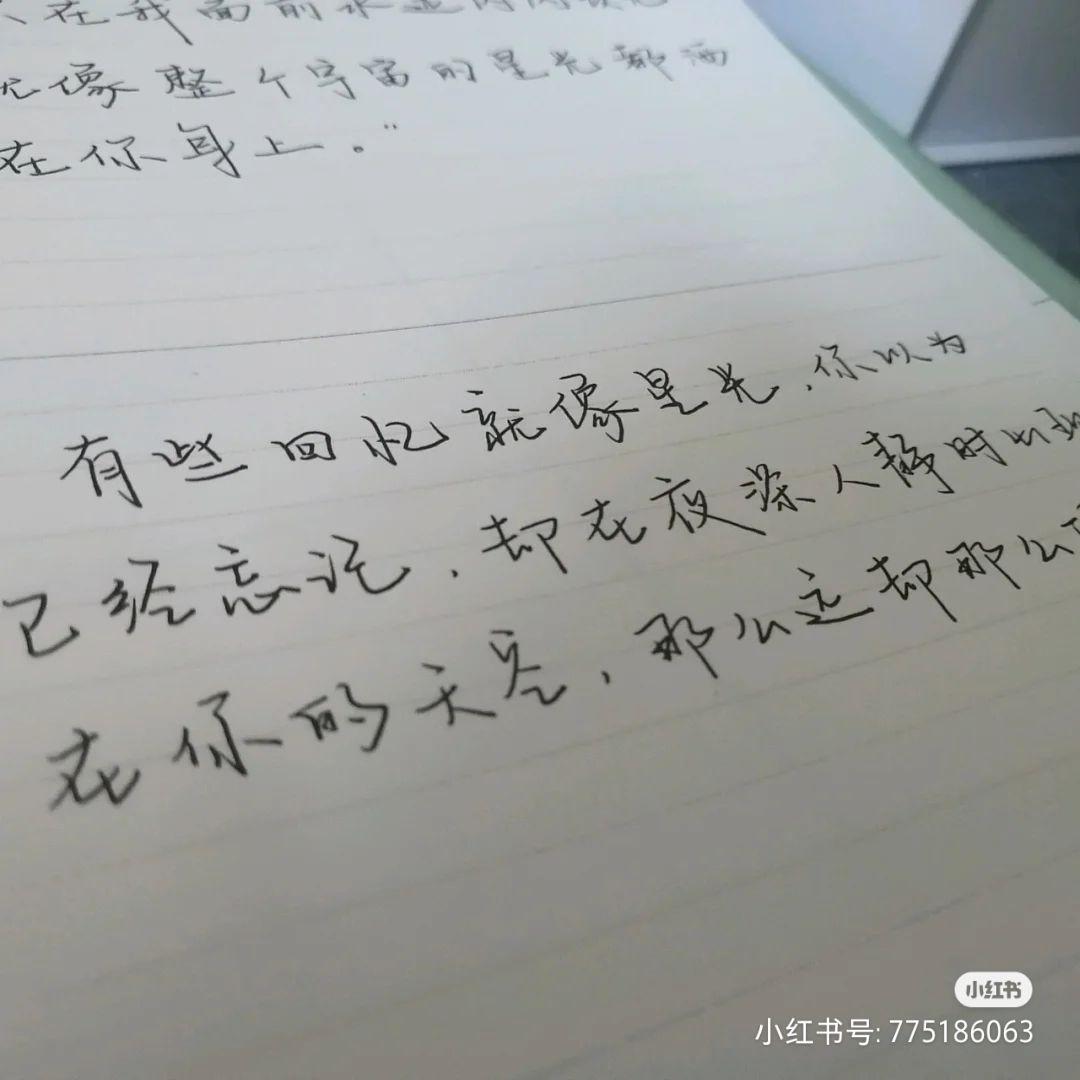 在我面前永远闪闪
像整个宇宙的星光都洒
在你身上。”
有些回忆就像星光，你以为
已经忘记，却在夜深人静时出现
在你的天空，那么远却那么
小红书
小红书号: 775186063